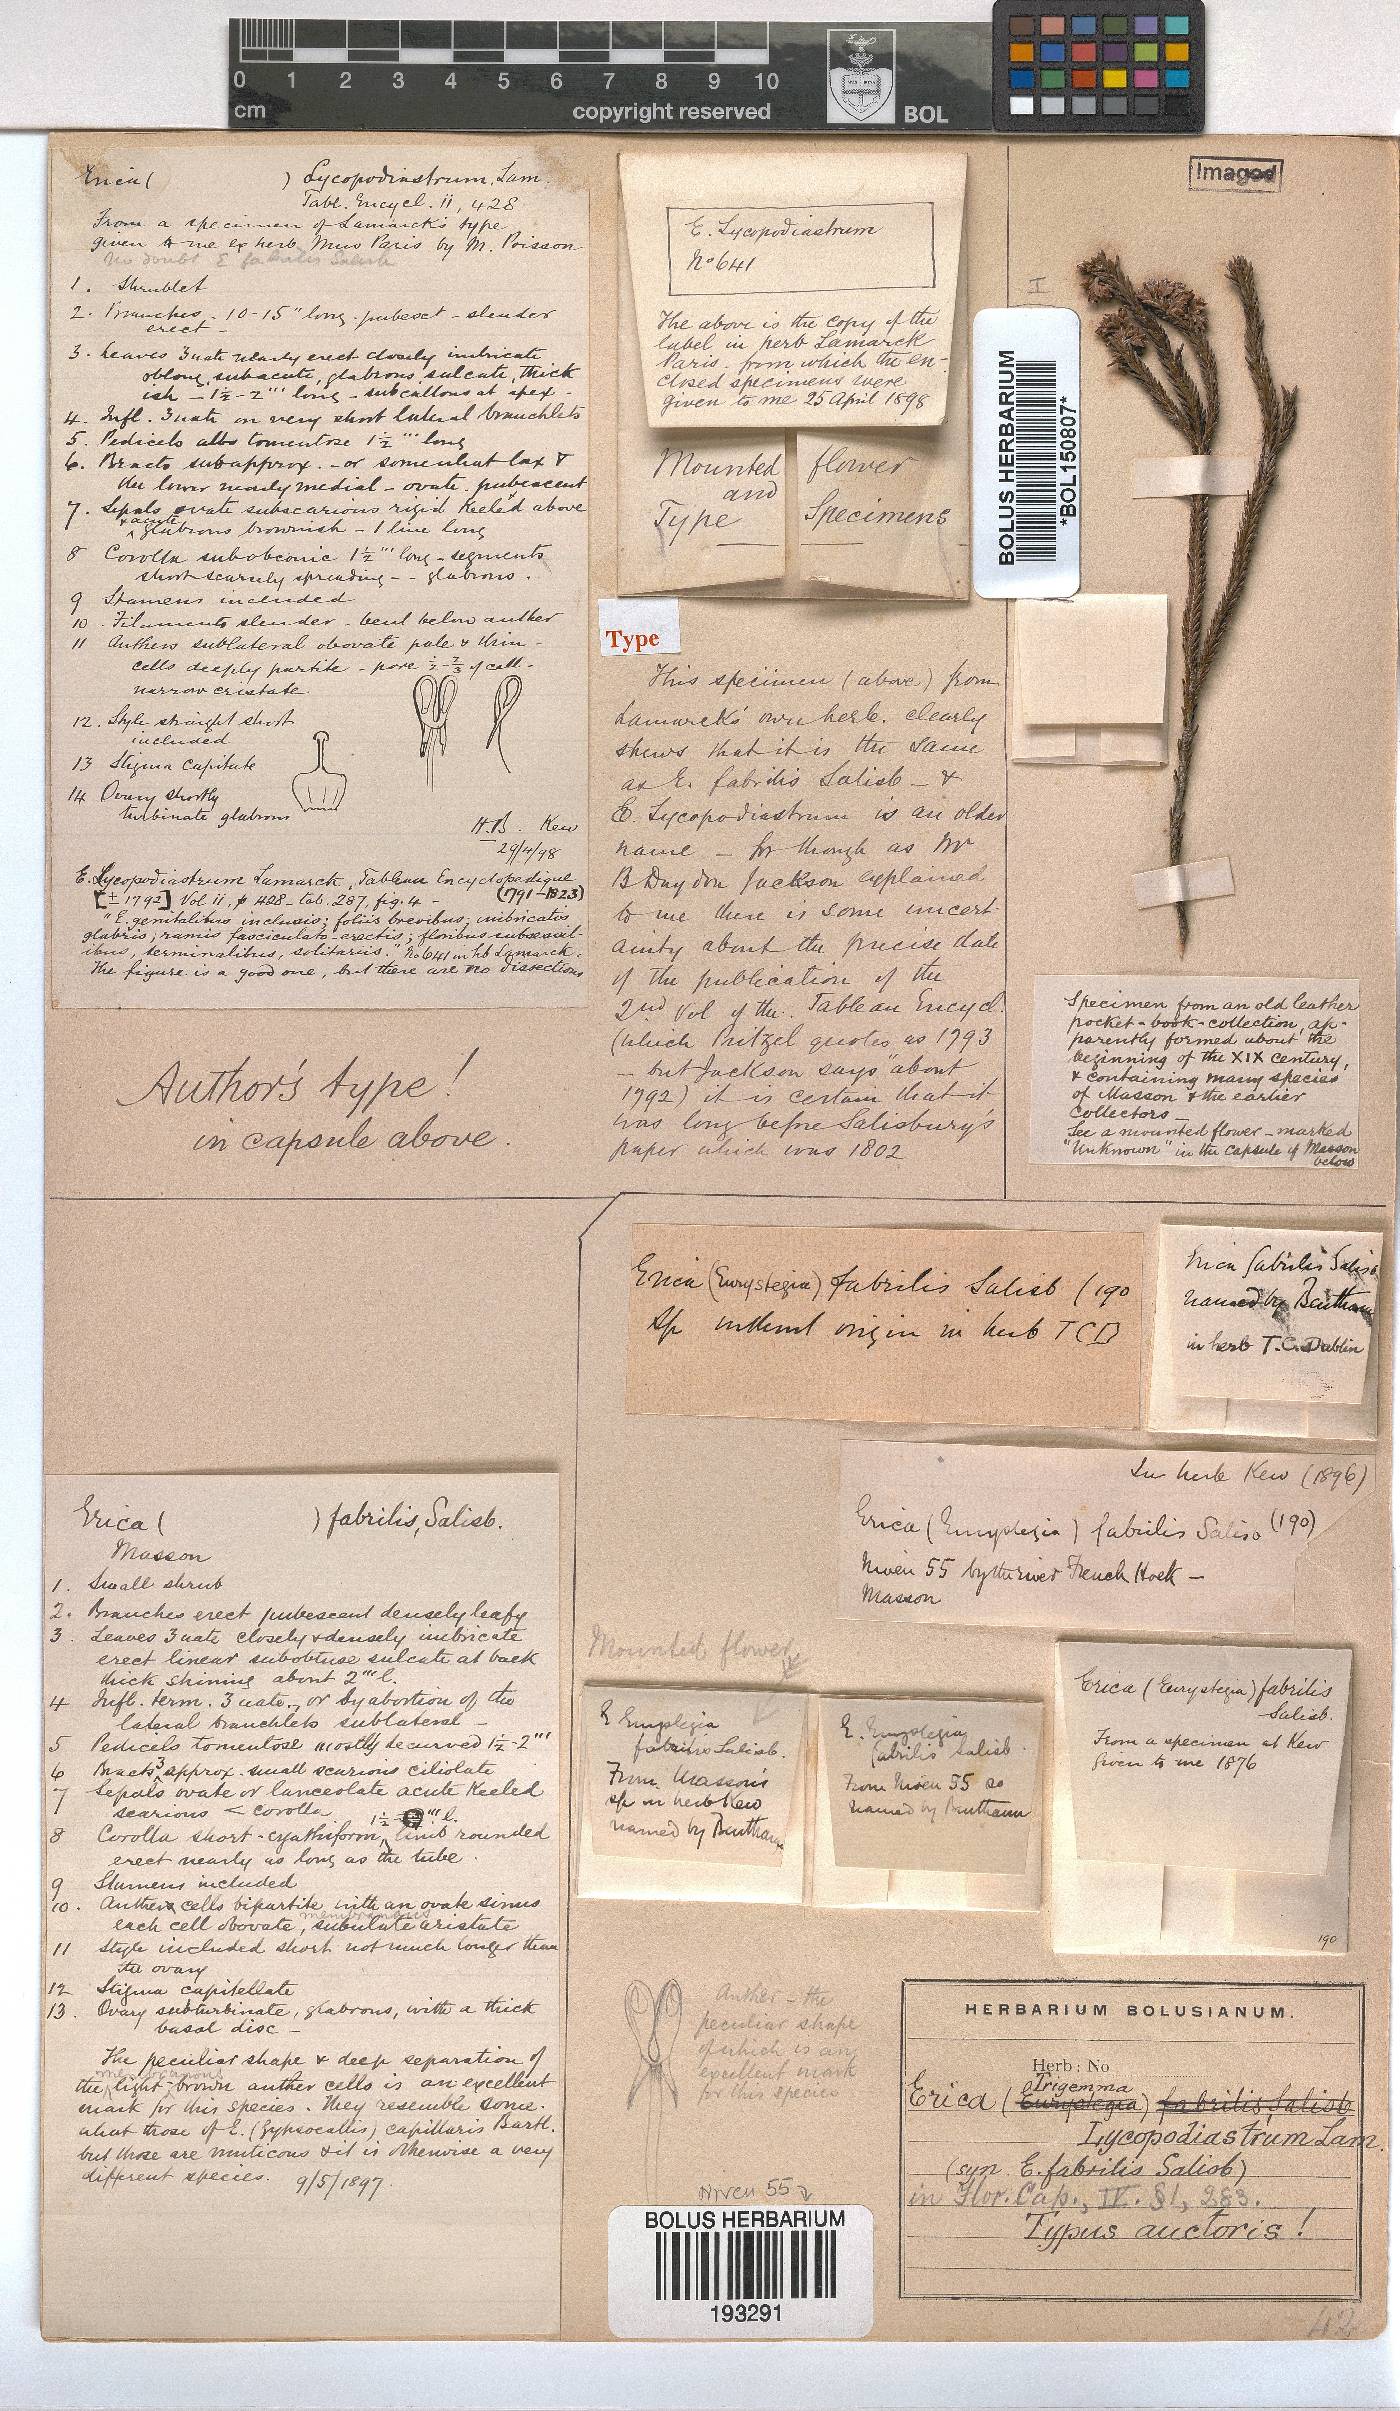 0 1 2 3 4 5 6 7 8 9 10
cm
copyright reserved
BOL
Erica ( ) Lycopodiastrum, Lam.
Tabl. Encycl. II, 428
From a specimen of Lamarck's type
given to me ex herb Mus Paris by M. Poisson
No doubt E fabrilis Salisb
1. Shrublet
2. Branches - 10-15" long - pubesct - slender
erect -
3. Leaves 3nate nearly erect closely imbricate
oblong, subacute, glabrous sulcate, thick
ish - 1½-2''' long - subcallous at apex -
4. Infl. 3nate on very short lateral branchlets
5. Pedicels albo tomentose 1½''' long
6. Bracts subapprox. - or somewhat lax &
the lower nearly medial - ovate. pubescent
7. Sepals ovate subscarious rigid keeled above
& acute
glabrous brownish - 1 line long
8 Corolla subobconic 1½''' long - segments
short scarcely spreading - - glabrous.
9 Stamens included
10. Filaments slender - bent below anther
11 Anthers sublateral obovate pale & thin -
cells deeply partite - pore ½-⅔ of cell -
narrow cristate.
12. Style straight short
included
13 Stigma capitate
14 Ovary shortly
turbinate glabrous
H.B. Kew
29/4/98
E. Lycopodiastrum Lamarck, Tableau Encyclopedique
[± 1792] Vol II, p 428 - tab. 287, fig. 4 - (1791-1823)
"E. genitalibus inclusis; foliis brevibus, imbricatis
glabris; ramis fasciculato-erectis; floribus subsessil-
ibus, terminalibus, solitariis." No 641 in hb Lamarck.
The figure is a good one, but there are no dissections
Author's type!
in capsule above.
E. Lycopodiastrum
No 641
The above is the copy of the
label in herb Lamarck
Paris. from which the en-
closed specimens were
given to me 25 April 1898
Mounted flower
and
Type Specimens
Type
This specimen (above) from
Lamarck's own herb. clearly
shews that it is the same
as E. fabrilis Salisb - &
E. Lycopodiastrum is an older
name - for though as Mr
B Daydon Jackson explained
to me there is some uncert-
ainty about the precise date
of the publication of the
2nd Vol of the Tableau Encycl.
(which Pritzel quotes as 1793
- but Jackson says "about
1792) it is certain that it
was long before Salisbury's
paper which was 1802
Imaged
I
BOLUS HERBARIUM
*BOL150807*
Specimen from an old leather
pocket-book-collection, ap-
parently formed about the
beginning of the XIX century,
& containing many species
of Masson & the earlier
collectors -
See a mounted flower - marked
"Unknown" in the capsule of Masson
below
Erica (Eurystegia) fabrilis Salisb (190
Sp without origin in herb TCD
Erica fabrilis Salisb.
named by Bentham
in herb T.C. Dublin
In herb Kew (1896)
Erica (Eurystegia) fabrilis Salisb (190)
Niven 55 by the river French Hoek -
Masson
Mounted flower
E Eurystegia
fabrilis Salisb.
From Masson's
sp in herb Kew
named by Bentham
E. Eurystegia
fabrilis Salisb.
From Niven 55 so
named by Bentham
Erica (Eurystegia) fabrilis
Salisb.
From a specimen at Kew
given to me 1876
190
Erica ( ) fabrilis, Salisb.
Masson
1. Small shrub
2. Branches erect pubescent densely leafy
3. Leaves 3nate closely & densely imbricate
erect linear subobtuse sulcate at back
thick shining about 2''' l.
4 Infl. term. 3nate, or by abortion of the
lateral branchlets sublateral -
5 Pedicels tomentose mostly decurved 1½-2'''
6 Bracts 3 approx. small scarious ciliolate
7 Sepals ovate or lanceolate acute keeled
scarious < corolla
1½ ''' l.
8 Corolla short-cyathiform, limb rounded
erect nearly as long as the tube.
9 Stamens included
10. Anther cells bipartite with an ovate sinus
membranous
each cell obovate, subulate aristate
11 Style included short not much longer than
the ovary
12 Stigma capitellate
13. Ovary subturbinate, glabrous, with a thick
basal disc -
The peculiar shape & deep separation of
membranous
the light-brown anther cells is an excellent
mark for this species. They resemble some-
what those of E. (Gypsocallis) capillaris Bartl.
but those are muticous & it is otherwise a very
different species. 9/5/1897.
Anther - the
peculiar shape
of which is an
excellent mark
for this species
Niven 55
BOLUS HERBARIUM
193291
HERBARIUM BOLUSIANUM.
Herb: No
Trigemma
Erica (Eurystegia) fabrilis, Salisb
Lycopodiastrum Lam.
(syn E. fabrilis Salisb)
in Flor. Cap., IV. §1, 283.
Typus auctoris!
42